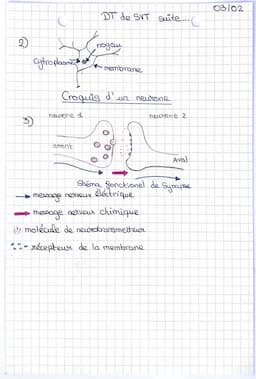 03/02
DT de SVT suite...
2)
noyau
cytroplasme
membrane
Croquis d'un neurone
3)
neurone 1
neurone 2
avant
Aval
Shéma fonctionel de Synapse
message nerveux électrique
message nerveux chimique
molécule de neurotransmetteur
récepteur de la membrane